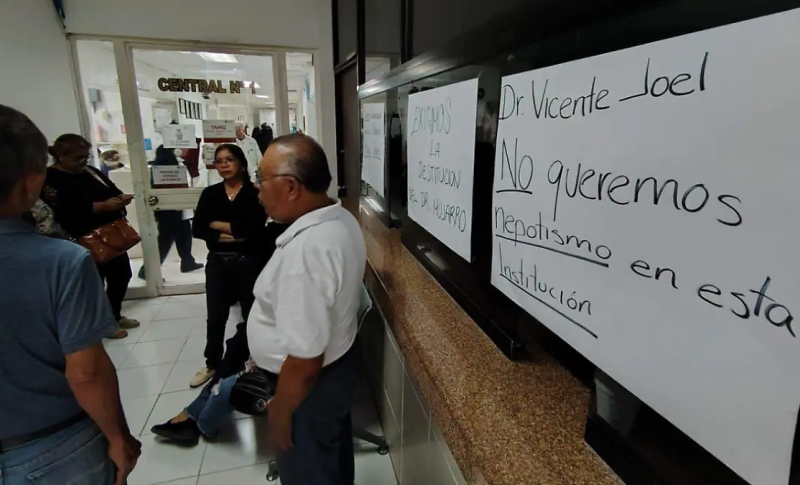 CENTRAL N°
EXIJAMOS
LA
DESTITUCIÓN
DEL DR. MOJARRO
Dr. Vicente Joel
No queremos
nepotismo en esta
Institución